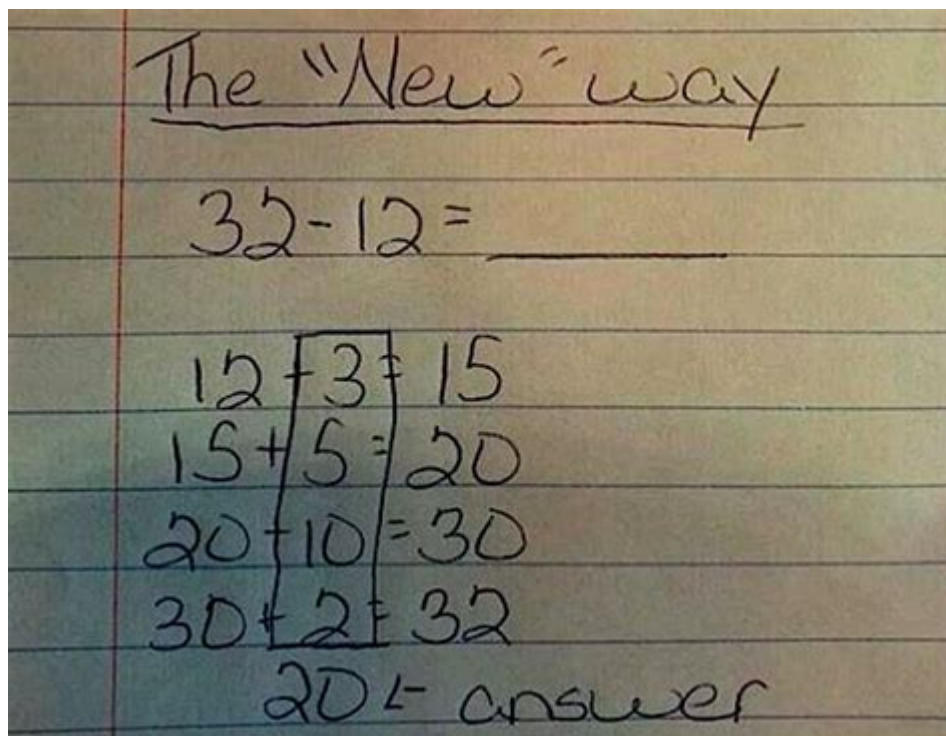 The "New" way
32-12=
12+3=15
15+5=20
20+10=30
30+2=32
20← answer